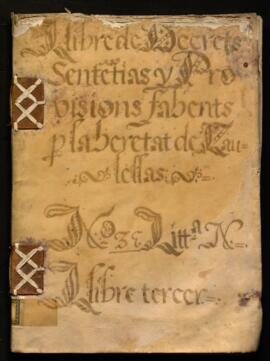 Llibre de Decrets
Sentetias y Pro
visions fahents
p la heretat de Cau
lellas
N.º 3 Litt.ª N
Llibre tercer